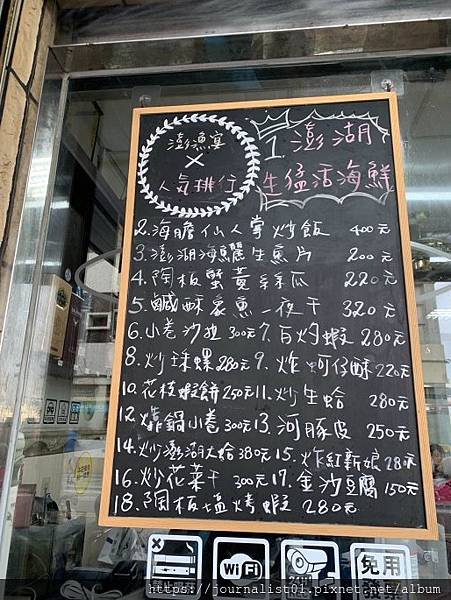 澎漁宴
×
人氣排行
1. 澎湖
生猛活海鮮
2. 海膽仙人掌炒飯 400元
3. 澎湖海鱺生魚片 200元
4. 陶板蟹黃絲瓜 220元
5. 鹹酥象魚一夜干 320元
6. 小卷沙拉 300元 7. 白灼蝦 280元
8. 炒珠螺 280元 9. 炸蚵仔酥 220元
10. 花枝蝦餅 250元 11. 炒生蛤 280元
12. 鍋小卷 300元 13. 河豚皮 250元
14. 炒澎湖大蛤 380元 15. 炸紅新娘 280元
16. 炒花菜干 300元 17. 金沙豆腐 150元
18. 陶板塩烤蝦 280元
WiFi
24H
免用
https://journalist01.pixnet.net/album